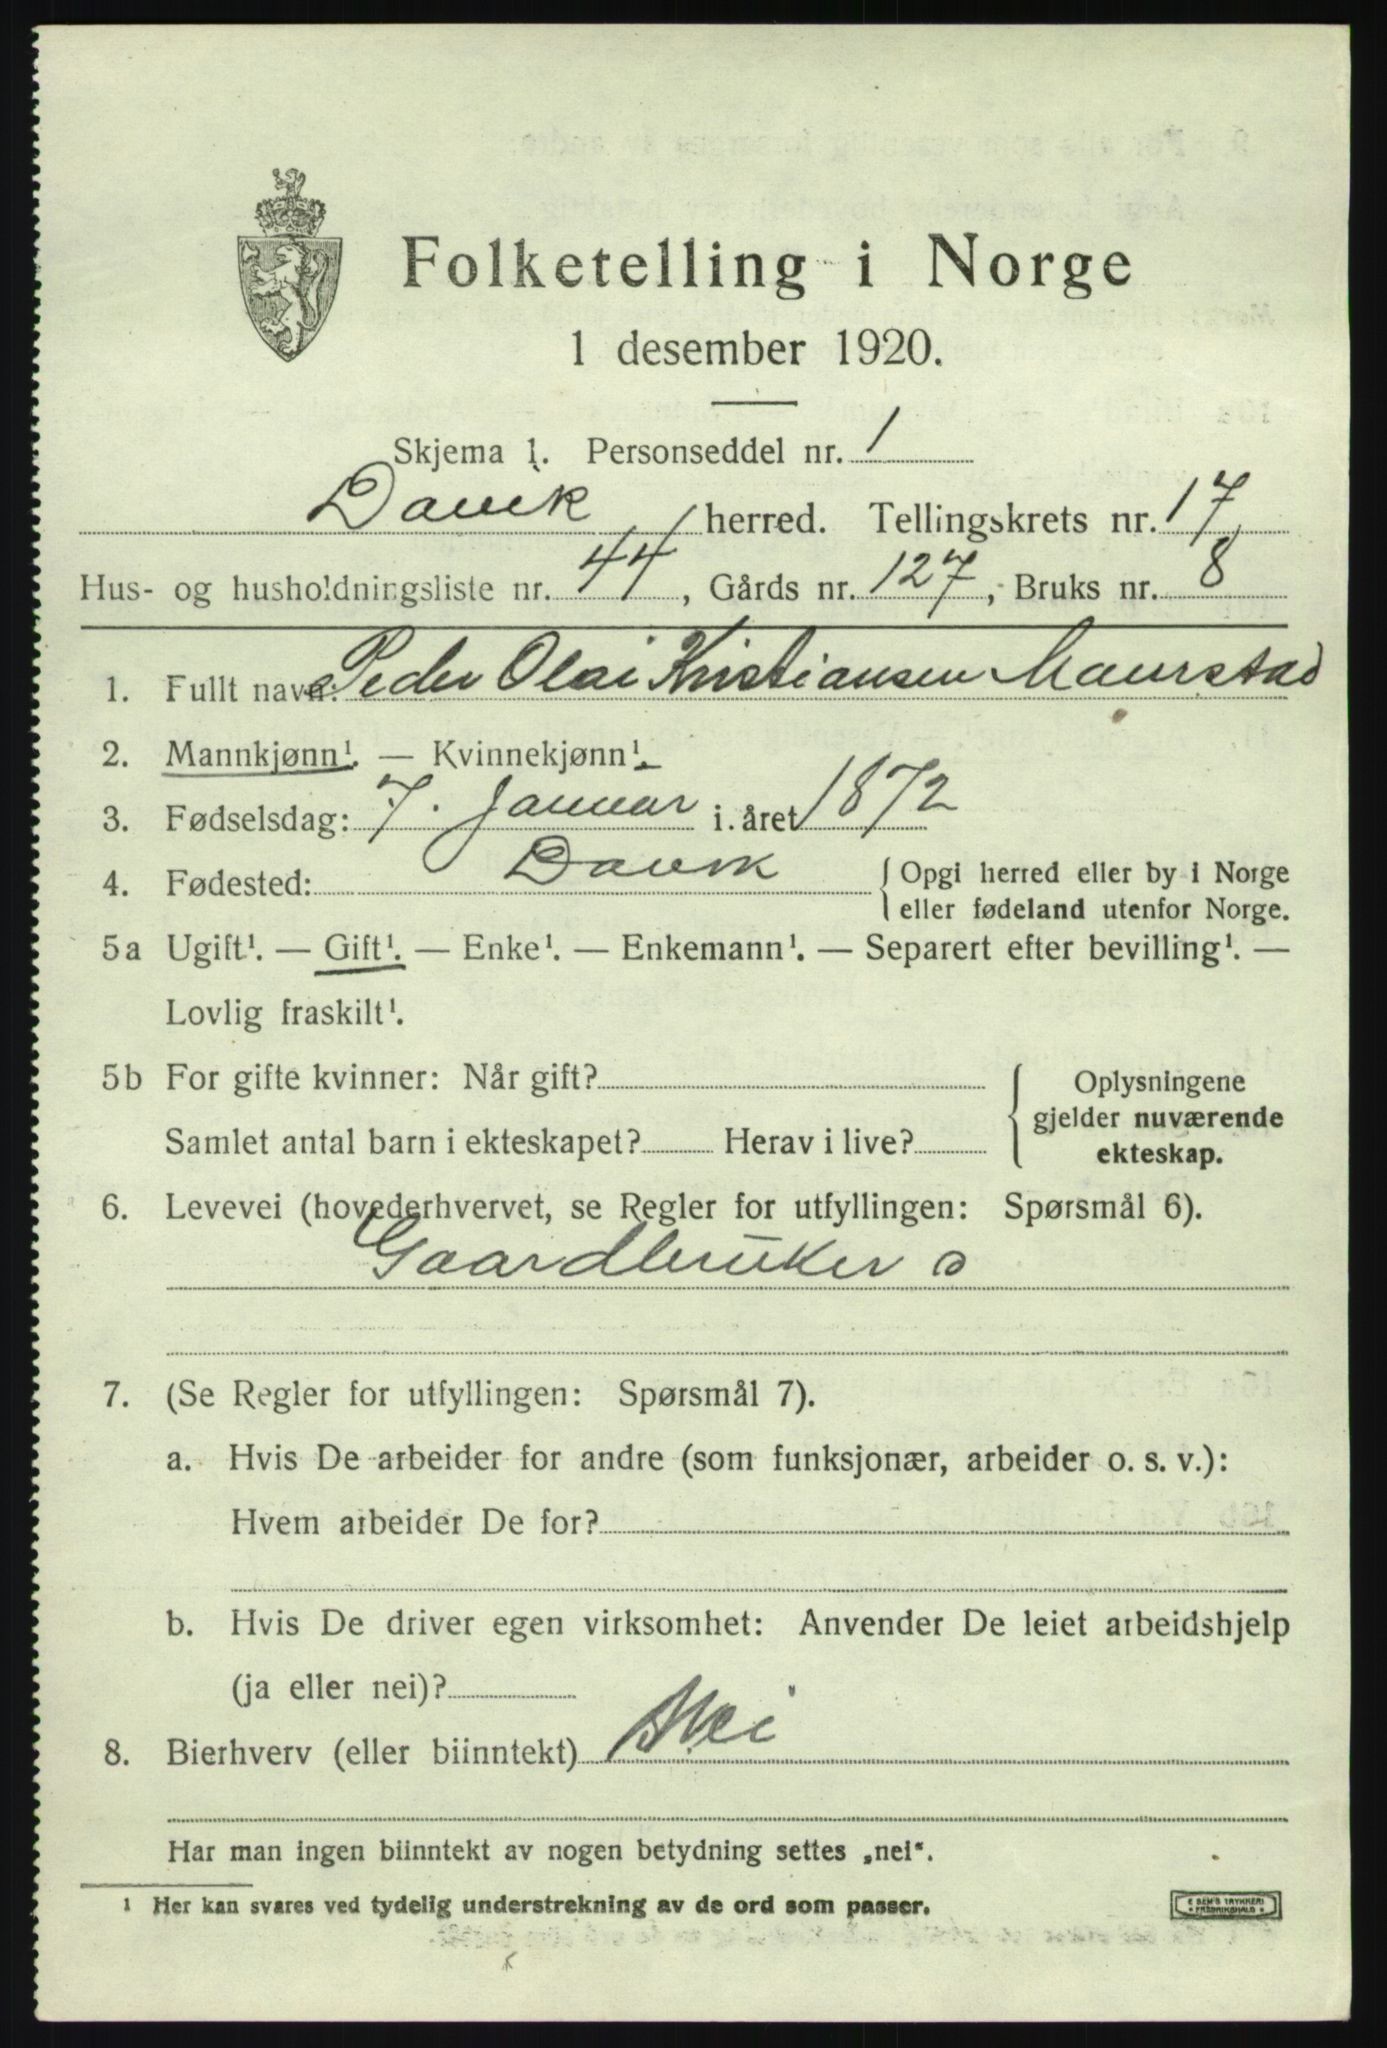 Folketelling i Norge
1 desember 1920.
Skjema 1. Personseddel nr. 1
Davik herred. Tellingskrets nr. 17
Hus- og husholdningsliste nr. 44, Gårds nr. 127, Bruks nr. 8
1. Fullt navn: Peder Olai Kristiansen Maurstad
2. Mannkjønn¹. — Kvinnekjønn¹.
3. Fødselsdag: 7. Januar i året 1872
4. Fødested: Davik { Opgi herred eller by i Norge
eller fødeland utenfor Norge.
5a Ugift¹. — Gift¹. — Enke¹. — Enkemann¹. — Separert efter bevilling¹. —
Lovlig fraskilt¹.
5b For gifte kvinner: Når gift? { Oplysningene
gjelder nuværende
Samlet antal barn i ekteskapet? Herav i live? ekteskap.
6. Levevei (hovederhvervet, se Regler for utfyllingen: Spørsmål 6).
Gaardbruker
7. (Se Regler for utfyllingen: Spørsmål 7).
a. Hvis De arbeider for andre (som funksjonær, arbeider o. s. v.):
Hvem arbeider De for?
b. Hvis De driver egen virksomhet: Anvender De leiet arbeidshjelp
(ja eller nei)?
8. Bierhverv (eller biinntekt) Nei
Har man ingen biinntekt av nogen betydning settes „nei“.
¹ Her kan svares ved tydelig understrekning av de ord som passer.
SEM'S TRYKKERI
FREDRIKSHALD